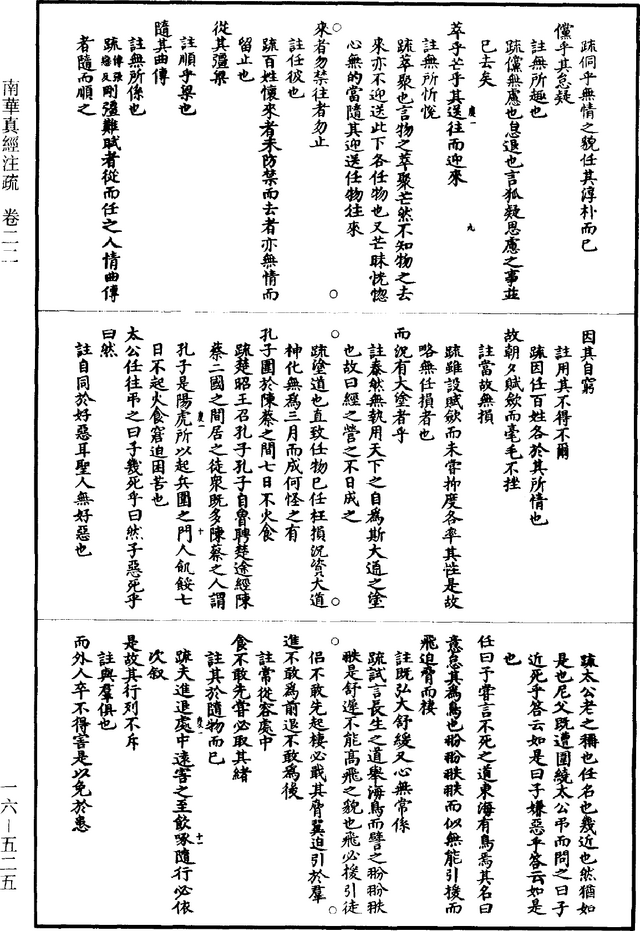 南華真經注疏　卷二二
一六—五二五
疏侗乎無情之貌任其淳朴而已
儻乎其怠疑
註無所趣也
疏儻無慮也怠退也言狐疑思慮之事並
已去矣
萃乎芒乎其送往而迎來
慶一　九
註無所忻悅
疏萃聚也言物之萃聚芒然不知物之去
來亦不迎送此下各任物也又芒昧恍惚
心無的當隨其迎送任物往來
來者勿禁往者勿止
註任彼也
疏百姓懷來者未防禁而去者亦無情而
留止也
從其彊梁
註順乎梁也
隨其曲傅
註無所係也
疏傅張戀反剛彊難賦者從而任之人情曲傅
者隨而順之
因其自窮
註用其不得不爾
疏因任百姓各於其所情也
故朝夕賦歛而毫毛不挫
註當故無損
疏雖設賦歛而未甞抑度各率其性是故
略無任損者也
而況有大塗者乎
註泰然無執用天下之自為斯大通之塗
也故曰經之營之不日成之
疏塗道也直致任物已任枉損況資大道
神化無為三月而成何怪之有
孔子圍於陳蔡之間七日不火食
疏楚昭王召孔子孔子自魯聘楚途經陳
蔡二國之間居之徒衆既多陳蔡之人謂
孔子是陽虎所以起兵圍之門人飢餒七
慶一　十
日不起火食窘迫困苦也
太公任往弔之曰子幾死乎曰然子惡死乎
曰然
註自同於好惡耳聖人無好惡也
疏太公老之稱也任名也幾近也然猶如
是也尼父既遭圍繞太公弔而問之曰子
近死乎答云如是曰子嫌惡乎答云如是
也
任曰子甞言不死之道東海有鳥焉其名曰
意怠其為鳥也翂翂翐翐而似無能引援而
飛迫脅而棲
註既弘大舒緩又心無常係
疏試言長生之道舉海鳥而譬之翂翂翐
翐是舒遲不能高飛之貌也飛必援引徒
侶不敢先起棲必戢其脅翼迫引於羣
進不敢為前退不敢為後
註常從容處中
食不敢先甞必取其緒
註其於隨物而已
疏夫進退處中遠害之至飲啄隨行必依
十一
次叙
是故其行列不斥
註與羣俱也
而外人卒不得害是以免於患